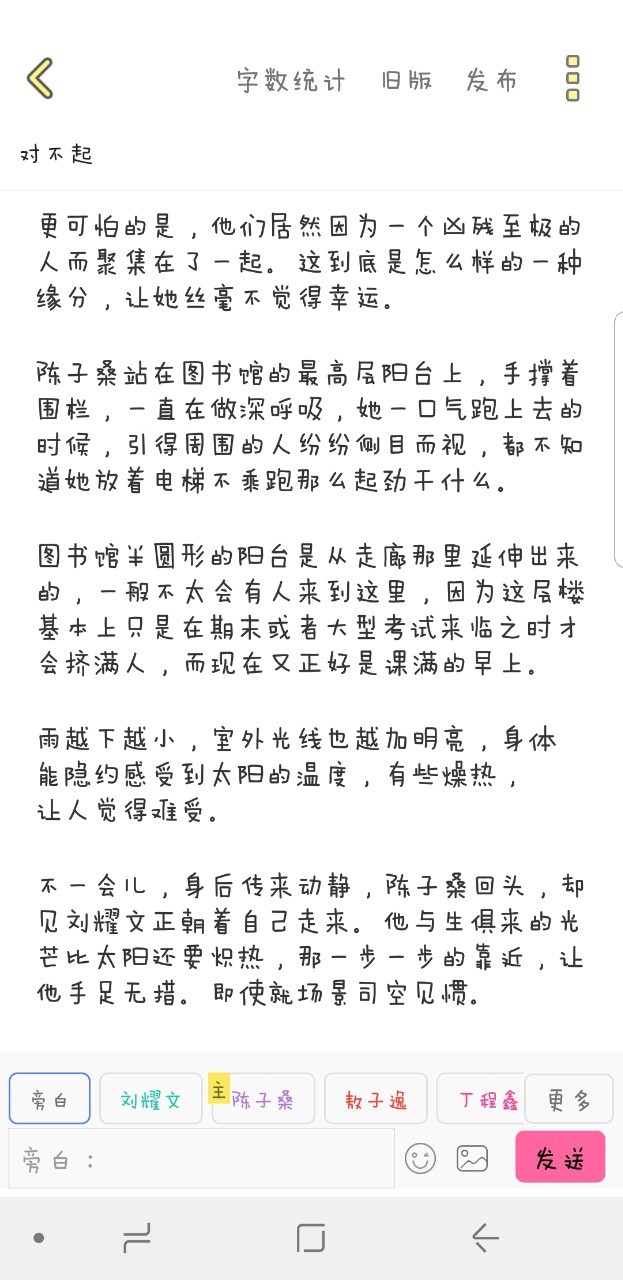 字数统计 旧版 发布
对不起
更可怕的是，他们居然因为一个凶残至极的
人而聚集在了一起。这到底是怎么样的一种
缘分，让她丝毫不觉得幸运。
陈子桑站在图书馆的最高层阳台上，手撑着
围栏，一直在做深呼吸，她一口气跑上去的
时候，引得周围的人纷纷侧目而视，都不知
道她放着电梯不乘跑那么起劲干什么。
图书馆半圆形的阳台是从走廊那里延伸出来
的，一般不太会有人来到这里，因为这层楼
基本上只是在期末或者大型考试来临之时才
会挤满人，而现在又正好是课满的早上。
雨越下越小，室外光线也越加明亮，身体
能隐约感受到太阳的温度，有些燥热，
让人觉得难受。
不一会儿，身后传来动静，陈子桑回头，却
见刘耀文正朝着自己走来。他与生俱来的光
芒比太阳还要炽热，那一步一步的靠近，让
他手足无措。即使就场景司空见惯。
旁白 刘耀文 主 陈子桑 敖子逸 丁程鑫 更多
旁白： 发送